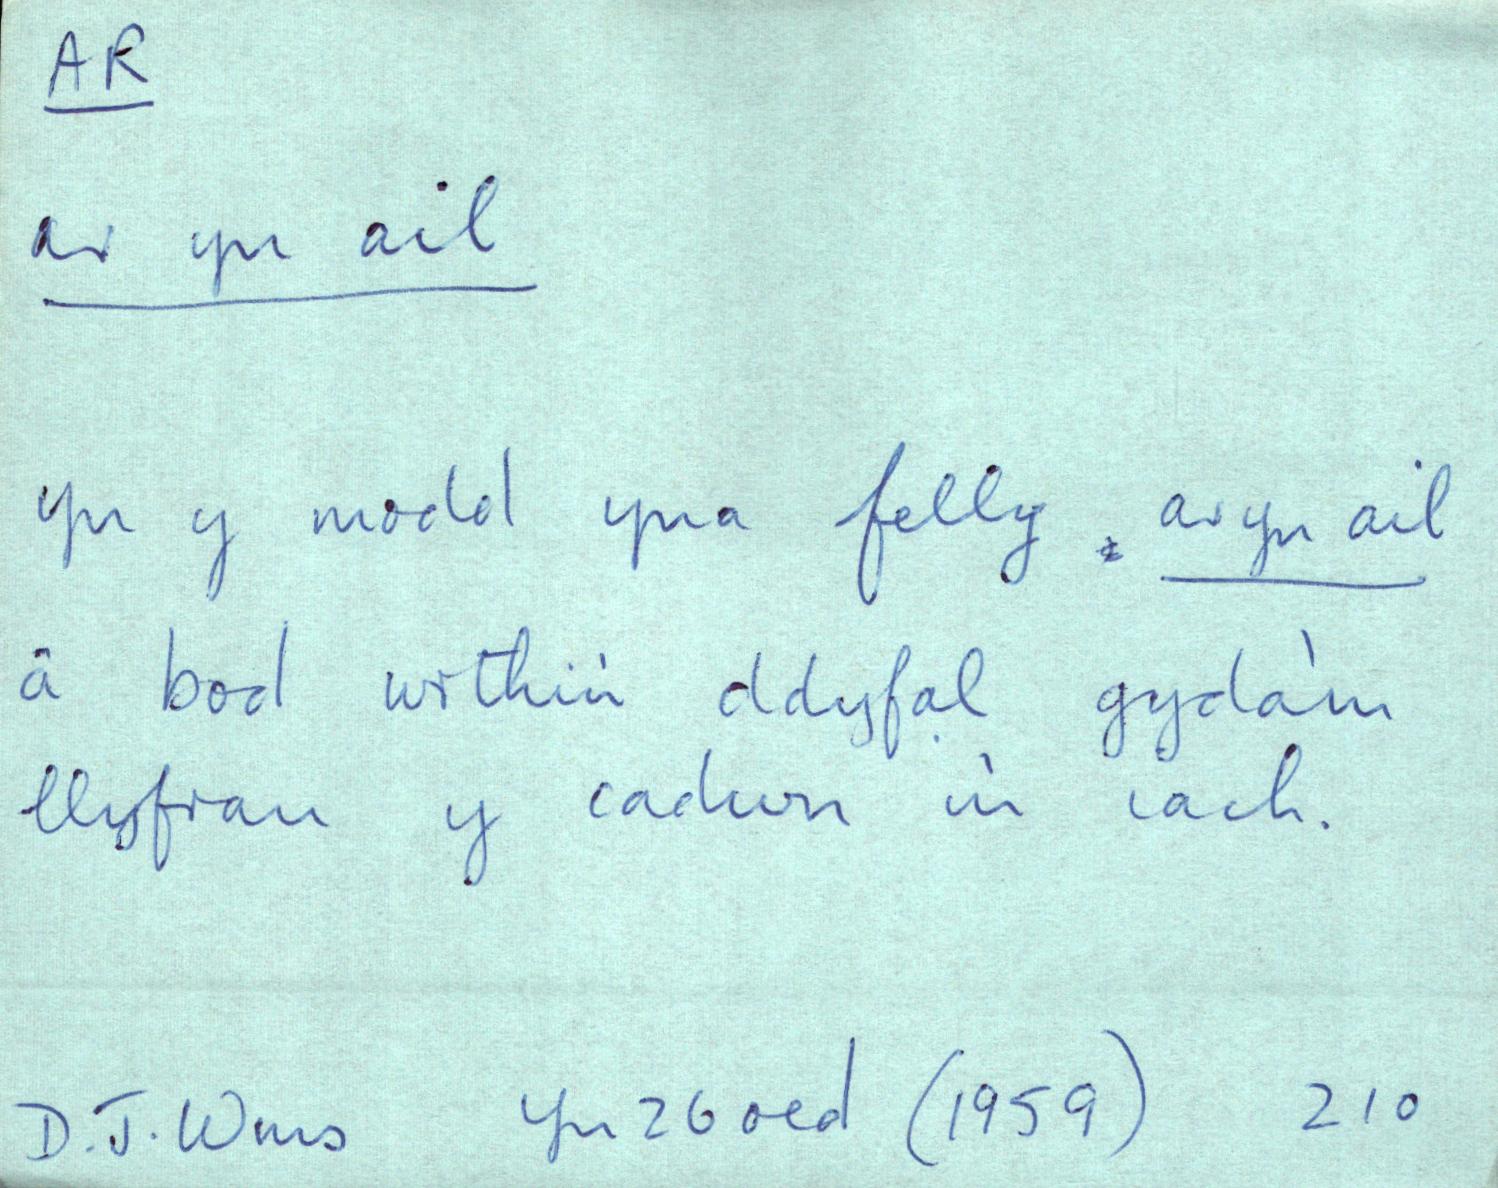 AR
ar yn ail
Yn y modd yna felly, ar yn ail
â bod wrthi'n ddyfal gyda'm
llyfrau y cadwn i'n iach.
D.J. Wms Yn 26 oed (1959) 210